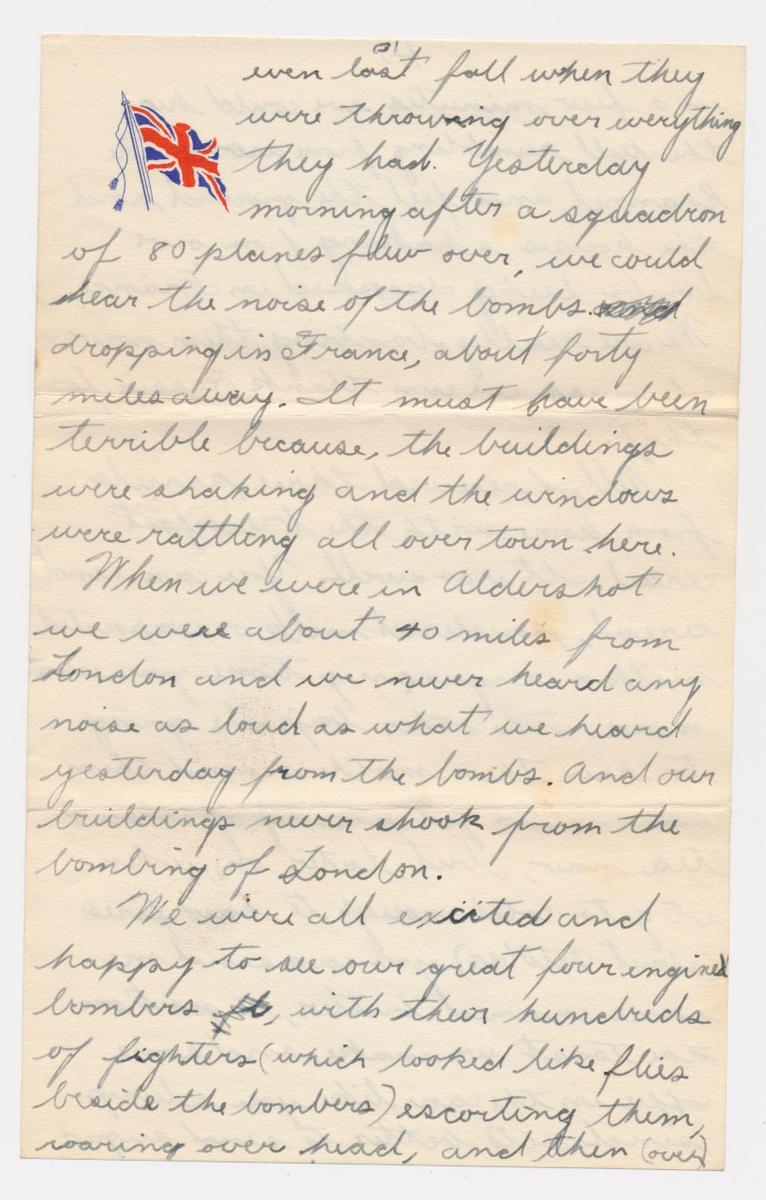 even last fall when they
were throwing over everything
they had. Yesterday
morning after a squadron
of 80 planes flew over, we could
hear the noise of the bombs.
dropping in France, about forty
miles away. It must have been
terrible because, the buildings
were shaking and the windows
were rattling all over town here.
When we were in Aldershot
we were about 40 miles from
London and we never heard any
noise as loud as what we heard
yesterday from the bombs. And our
buildings never shook from the
bombing of London.
We were all excited and
happy to see our great four engined
bombers, with their hundreds
of fighters (which looked like flies
beside the bombers) escorting them,
roaring over head, and then (over)